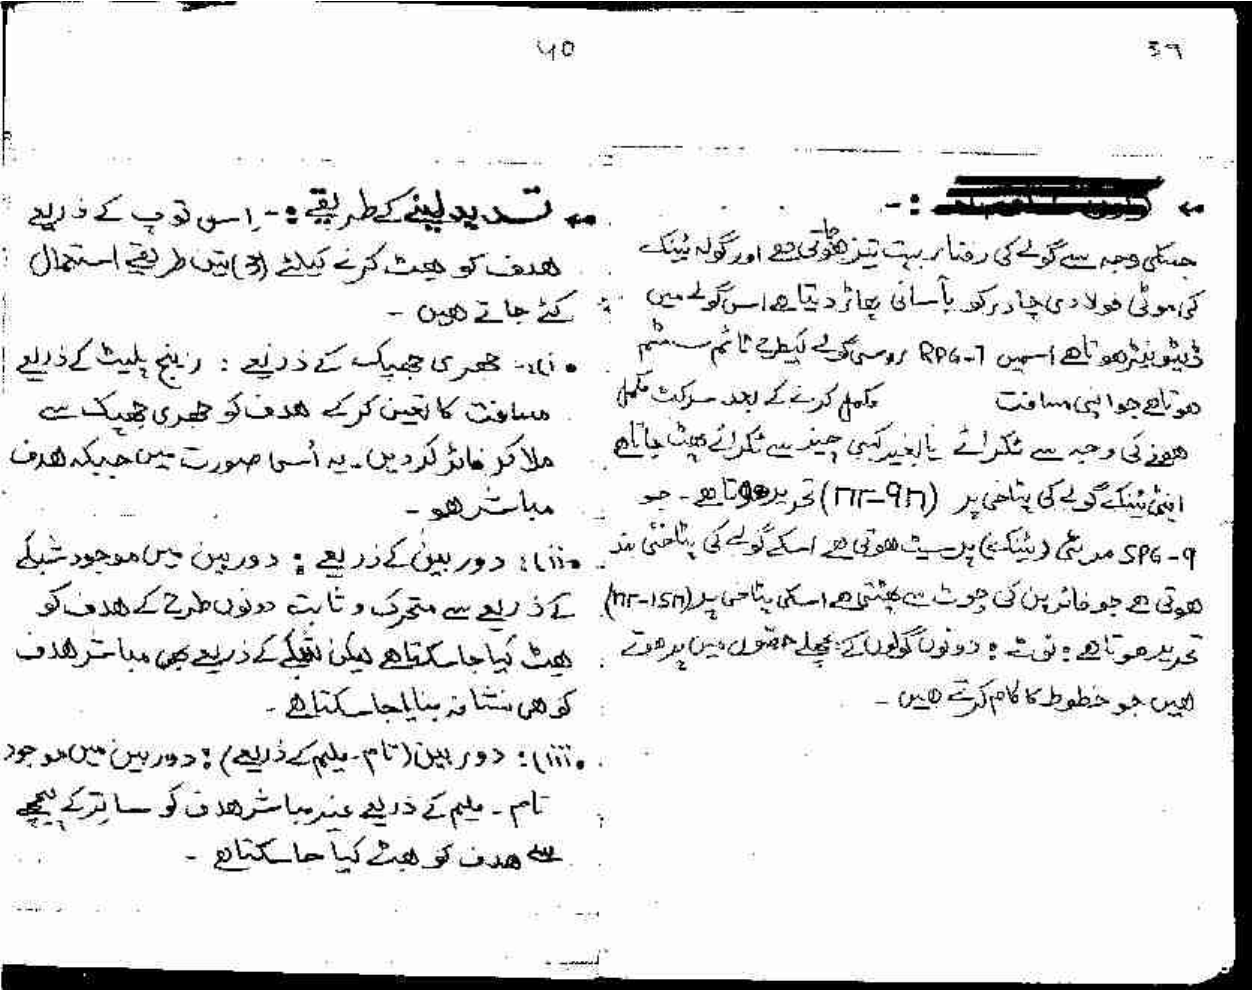 39
جسکی وجہ سے گولے کی رفتار بہت تیز ہو جاتی ہے اور گولہ ٹینک
کی موٹی فولادی چادر کو بآسانی پھاڑ دیتا ہے اس گولے میں
ڈیٹونیٹر ھوتا ھے اسمیں RPG-7 روسی گولے کیطرح ٹائم سسٹم
ھوتا ھے جو اپنی مسافت مکمل کرنے کے بعد سرکٹ مکمل
ھونے کی وجہ سے ٹکرائے یا بغیر کسی چیز سے ٹکرائے پھٹ جاتا ھے
اینٹی ٹینک گولے کی پتاخی پر تحریر ھوتا ھے۔ جو
SPG-9 پر سیٹ ھوتی ھے اسکے گولے کی پتاخی بند
ھوتی ھے جو فائر پن کی چوٹ سے پھٹتی ھے اسکی پتاخی پر
تحریر ھوتا ھے : نوٹ : دونوں گولوں کے پچھلے حصوں میں پر ھوتے
ھیں جو خطوط کا کام کرتے ھیں ۔
40
← تسدید لینے کے طریقے :۔ اِس توپ کے ذریعے
ھدف کو ھٹ کرنے کیلئے (3) تین طریقے استعمال
کئے جاتے ھیں ۔
(i):۔ جھری جھپک کے ذریعے : رینج پلیٹ کے ذریعے
مسافت کا تعین کر کے ھدف کو جھری جھپک سے
ملا کر فائر کر دیں۔ یہ اُسی صورت میں جبکہ ھدف
مباشر ھو ۔
(ii): دوربین کے ذریعے : دوربین میں موجود شبکے
کے ذریعے سے متحرک و ثابت دونوں طرح کے ھدف کو
ھٹ کیا جا سکتا ھے لیکن شبکے کے ذریعے بھی مباشر ھدف
کو ھی نشانہ بنایا جا سکتا ھے ۔
(iii): دوربین (تام۔ملیم کے ذریعے) : دوربین میں موجود
تام ۔ ملیم کے ذریعے غیر مباشر ھدف کو ساتر کے پیچھے
سے ھدف کو ھٹ کیا جا سکتا ھے ۔